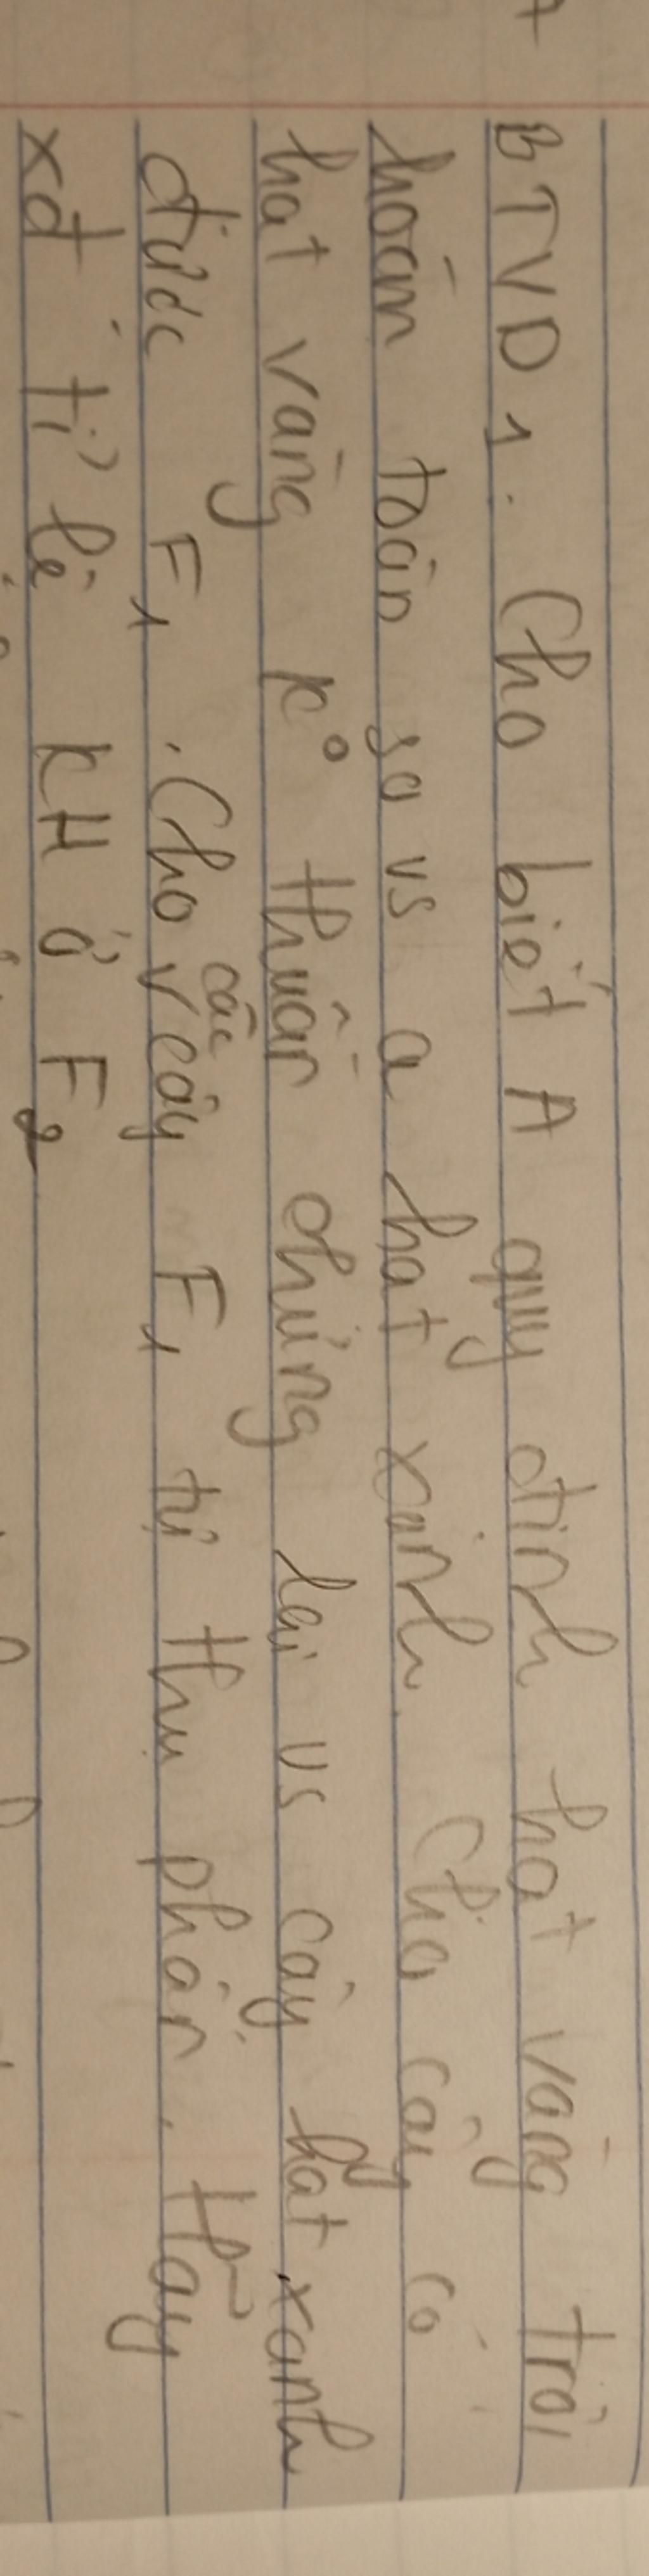 BTVD1. Cho biết A quy định hạt vàng trội
hoàn toàn so vs a hạt xanh. Cho cây có
hạt vàng k° thuần chủng lai vs cây hạt xanh
được F1. Cho các cây F1 tự thụ phấn. Hãy
xđ tỉ lệ KH ở F2